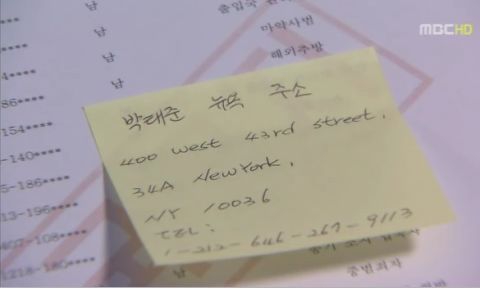 남
출입국
MBC HD
남
마약사범
남
해외추방
86****
남
154****
-140****
5-186****
13-196****
407-108****
1218-180****
박태준 뉴욕 주소
400 West 43rd Street,
34A New York,
NY 10036
TEL:
1-212-646-267-9113
남
중범죄자